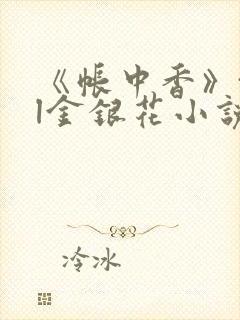 《帐中香》
|金银花小说
冷冰